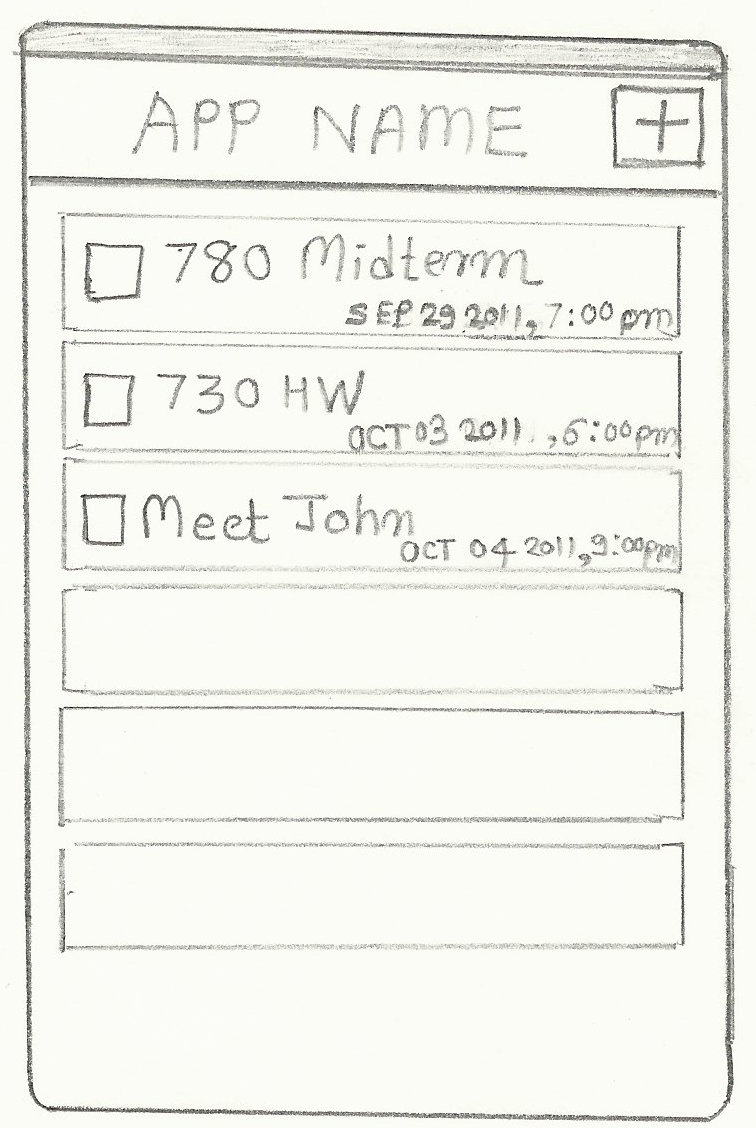 APP NAME +
780 Midterm
SEP 29 2011, 7:00 pm
730 HW
OCT 03 2011, 6:00pm
Meet John
OCT 04 2011, 9:00pm